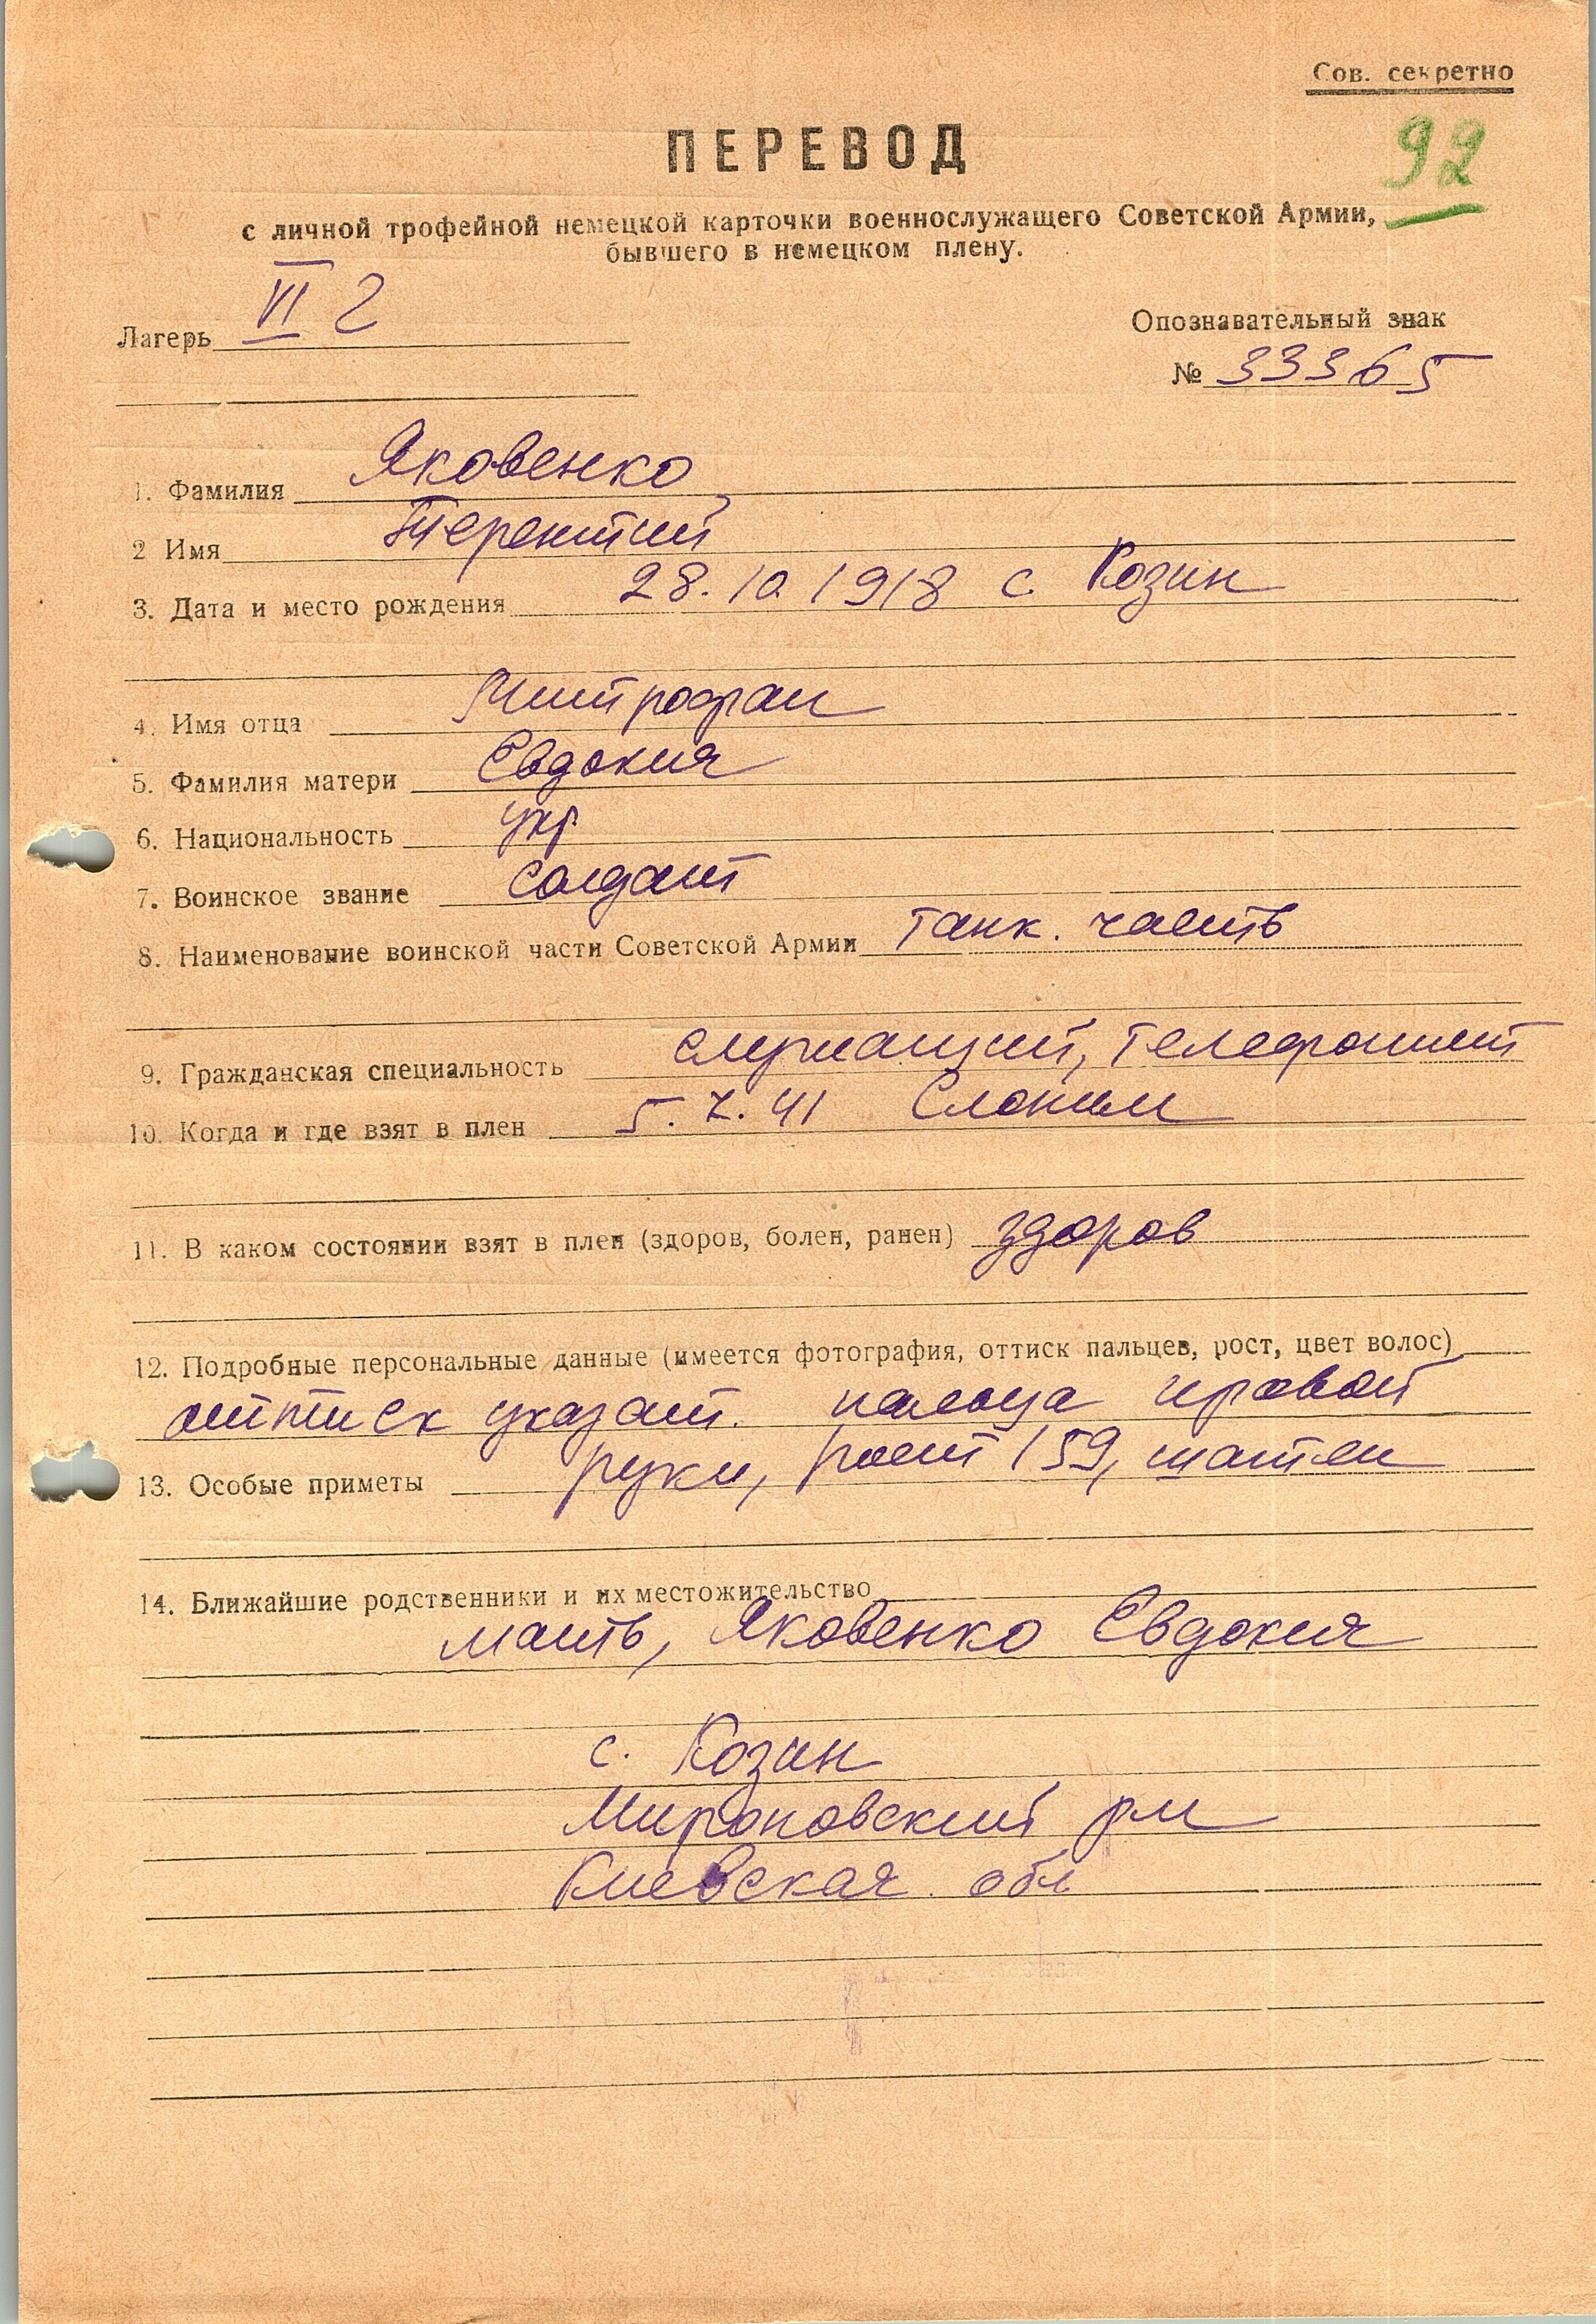 Сов. секретно
92
ПЕРЕВОД
с личной трофейной немецкой карточки военнослужащего Советской Армии,
бывшего в немецком плену.
Лагерь VI г
Опознавательный знак
№ 33365
1. Фамилия Яковенко
2 Имя Терентий
3. Дата и место рождения 28.10.1918 с. Козин
4. Имя отца Митрофан
5. Фамилия матери Евдокия
6. Национальность укр
7. Воинское звание солдат
8. Наименование воинской части Советской Армии танк. часть
9. Гражданская специальность служащий, телефонист
10. Когда и где взят в плен 5.7.41 Слоним
11. В каком состоянии взят в плен (здоров, болен, ранен) здоров
12. Подробные персональные данные (имеется фотография, оттиск пальцев, рост, цвет волос)
оттиск указат. пальца правой
13. Особые приметы руки, рост 159, шатен
14. Ближайшие родственники и их местожительство
мать, Яковенко Евдокия
с. Козин
Мироновский рн
Киевская обл